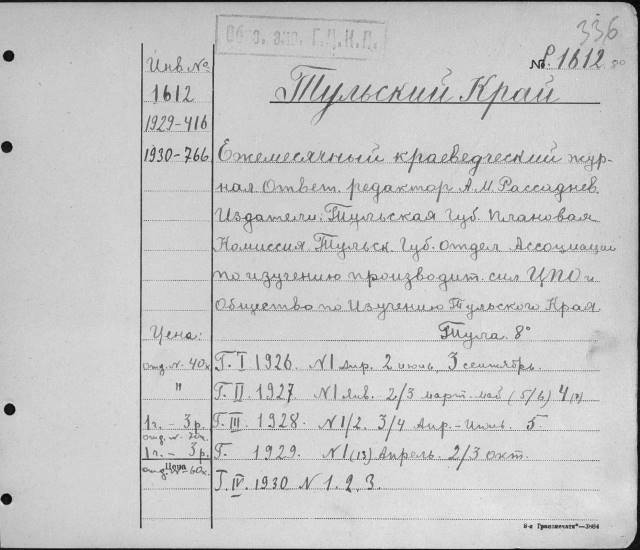 336
Обяз. экз. Г.Ц.К.П.
Инв №
№ P.1612
1612
Тульский Край
1929-416
1930-766
Ежемесячный краеведческий жур-
нал Ответ. редактор А.М. Рассаднев.
Издатели: Тульская Губ. плановая
Комиссия Тульск. Губ. отдел Ассоциации
по изучению производит. сил ЦПО и
Общество по Изучению Тульского Края
Тула 8°
Цена:
отд. № 40к
Г. I 1926. N1 Апр. 2 июнь, 3 сентябрь.
"
Г. II. 1927. N1 Янв. 2/3 март. май (5/6) 4(7)
1 г. – 3 р.
Г. III. 1928. N1/2. 3/4 Апр.-Июль. 5
1 г. – 3 р.
Г. 1929. N1(13) Апрель. 2/3 окт.
Цена
отд. № 60к.
Г. IV. 1930 N 1. 2. 3.
8-я „Транспечати“—3964